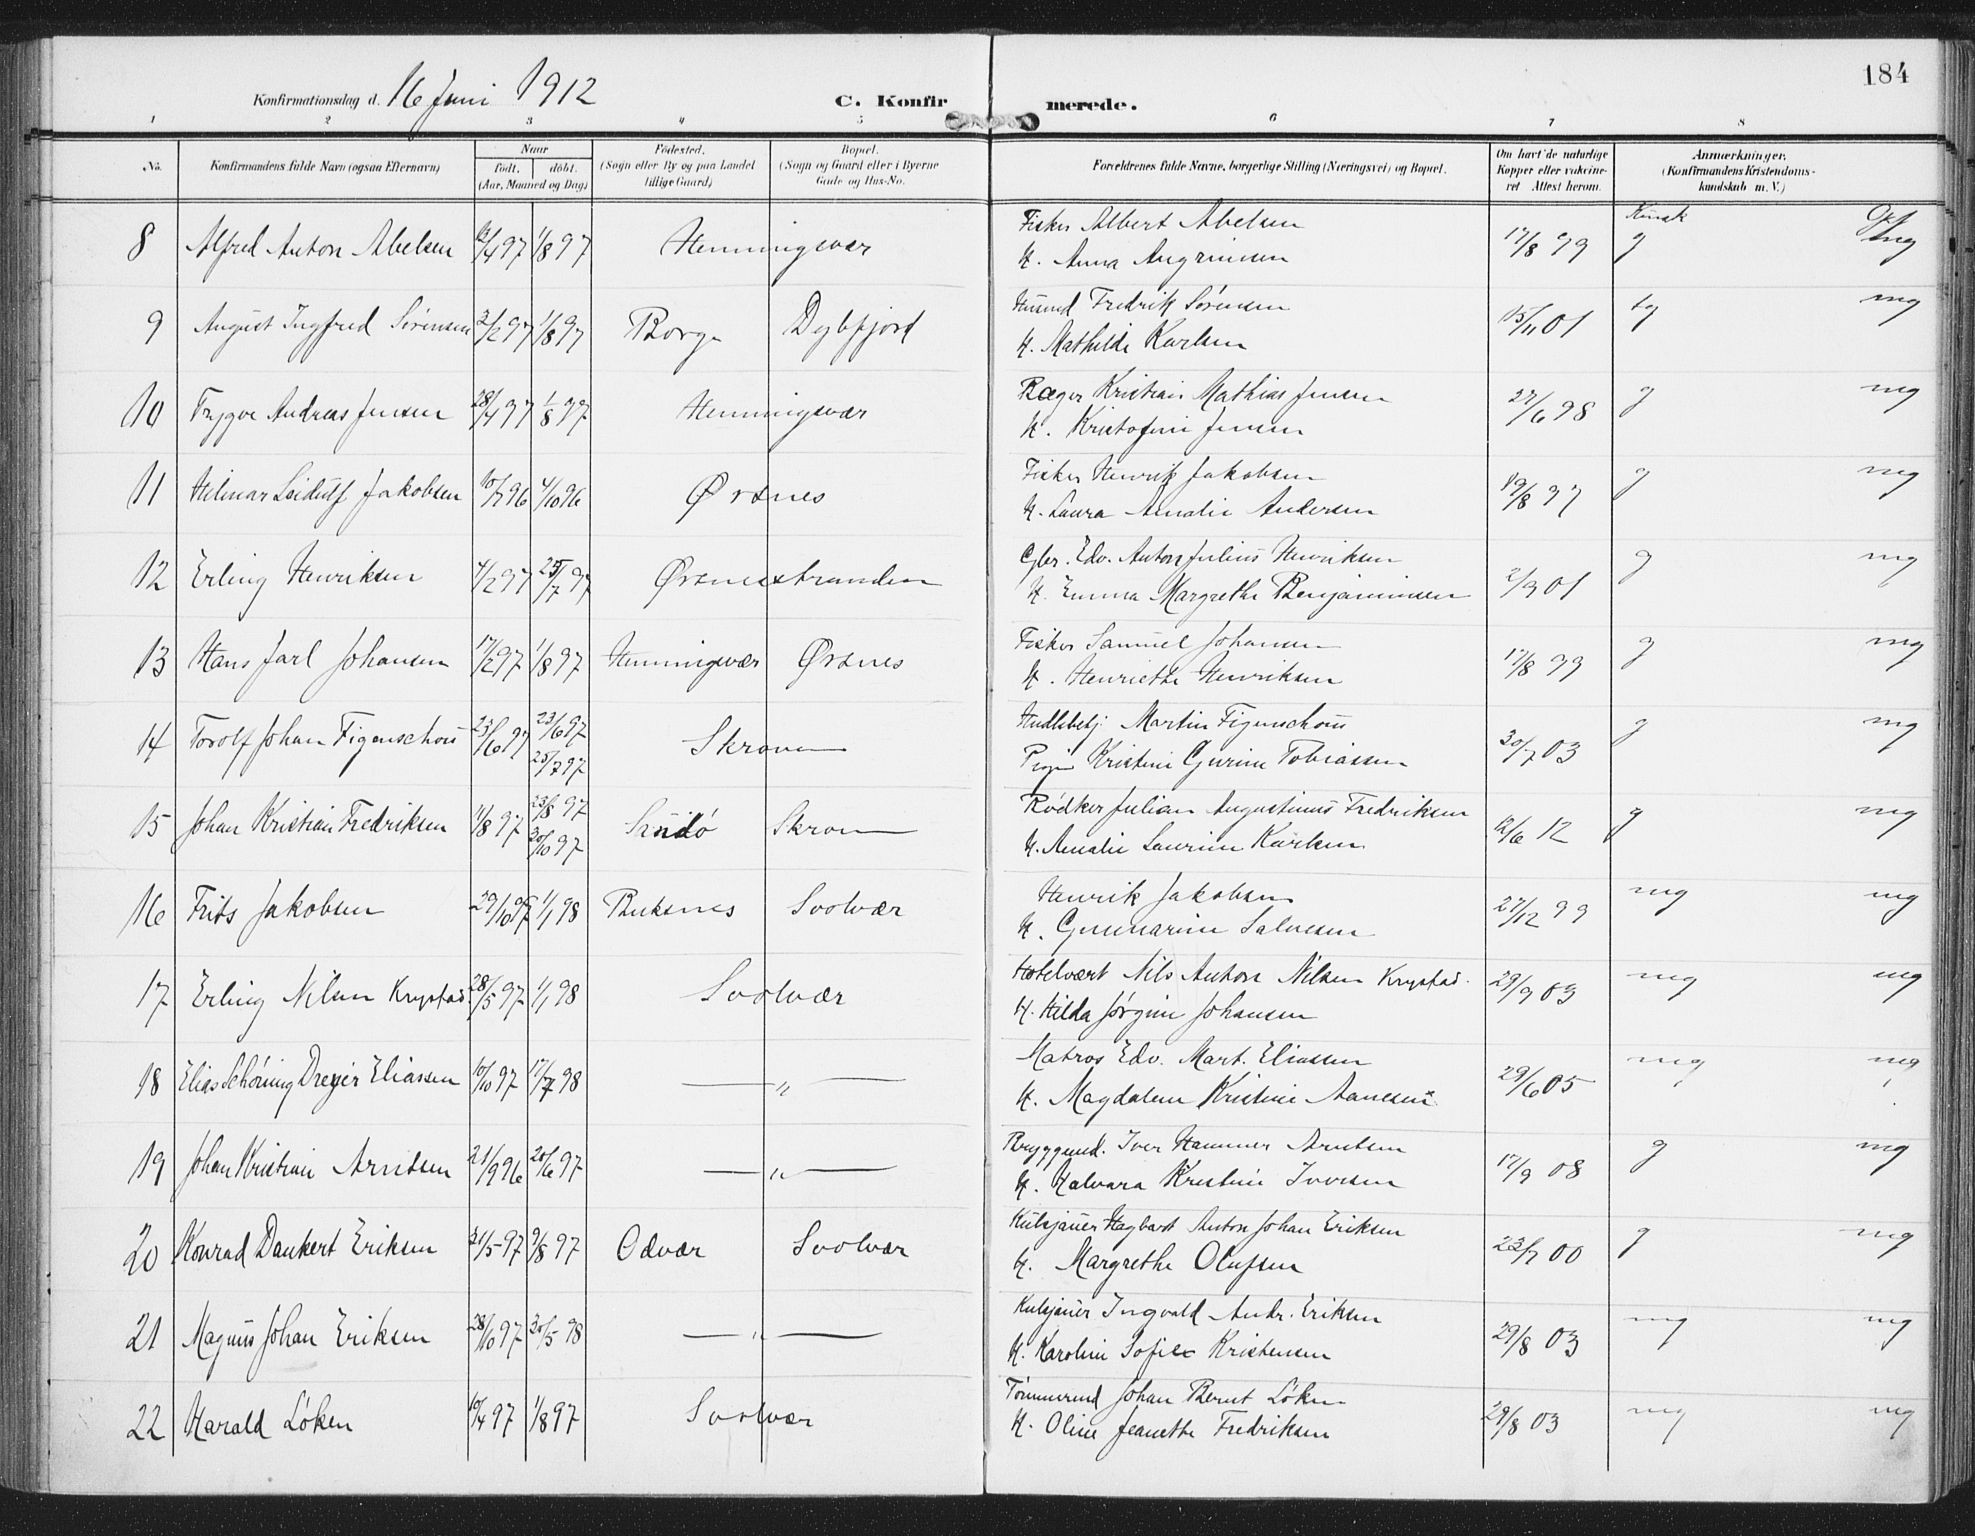 184
Konfirmationsdag d. 16 Juni 1912 C. Konfirmerede.
1 2 3 4 5 6 7 8
No. Konfirmandens fulde Navn (ogsaa Efternavn) Naar født. døbt. (Aar, Maaned og Dag) Fødested. (Sogn eller By og paa Landet tillige Gaard) Bopæl. (Sogn og Gaard eller i Byerne Gade og Hus-No. Forældrenes fulde Navne, borgerlige Stilling (Næringsvei) og Bopæl. Om havt de naturlige Kopper eller vakcineret Attest herom. Anmærkninger. (Konfirmandens Kristendomskundskab m. V.)
Kunsk
8 Alfred Anton Abelsen /4 97 1/8 97 Henningsvær Fisker Albert Abelsen 17/8 99 g mg
H. Anna Angrimsen
9 August Ingfred Sørensen 2/2 97 1/8 97 Borge Dybfjord Husmd Fredrik Sørensen 15/11 01 tg mg
H. Mathilde Karlsen
10 Trygve Andreas Jensen 28/4 97 1/8 97 Henningsvær Kristian Mathias Jensen 27/6 98 g mg
H. Kristofine Jensen
11 Hilmar Leidulf Jakobsen 10/7 96 4/10 96 Ørsnes Fisker Henrik Jakobsen 19/8 97 g mg
H. Laura Amalie Andersen
12 Erling Henriksen 4/2 97 25/7 97 Ørsnesstranden Gbr. Edv. Anton Julius Henriksen 2/9 01 g mg
H. Emma Margrethe Benjaminsen
13 Hans Jarl Johansen 17/2 97 1/8 97 Henningsvær Ørsnes Fisker Samuel Johansen 17/8 99 g mg
H. Henriethe Henriksen
14 Torolf Johan Figenschou 23/6 97 23/6 97 25/7 97 Skroven Handelsbetj. Martin Figenschou 30/7 03 g mg
Pige Kristine Gurine Tobiassen
15 Johan Kristian Fredriksen 11/8 97 23/8 97 30/10 97 Sandö Skroven Rødker Julian Augustinus Fredriksen 12/6 12 g mg
H. Amalie Laurine Karlsen
16 Frits Jakobsen 29/10 97 1/1 98 Buksnes Svolvær Henrik Jakobsen 27/12 99 mg mg
H. Gunnarine Salvesen
17 Erling Nilsen Krystad 28/5 97 1/1 98 Svolvær Hotelvært Nils Anton Nilsen Krystad. 29/9 03 mg mg
H. Hilda Jørgine Johansen
18 Elias Schøning Dreyer Eliassen 10/10 97 17/7 98 — " — Matros Edv. Mart. Eliassen 29/6 05 mg mg
H. Magdalene Kristine Aanesen
19 Johan Kristian Arntsen 21/9 96 20/6 97 — " — Bryggemd. Iver Hammer Arntsen 17/9 08 g mg
H. Halvara Kristine Iversen
20 Konrad Dankert Eriksen 21/5 97 9/8 97 Odvær Svolvær Kulsjauer Hagbart Anton Johan Eriksen 23/7 00 g mg
H. Margrethe Olufsen
21 Magnus Johan Eriksen 28/10 97 30/5 98 — " — Kulsjauer Ingvald Andr. Eriksen 29/8 03 mg mg
H. Karoline Sofie Kristensen
22 Harald Løken /4 97 1/8 97 Svolvær Tømmermd Johan Bernt Løken 29/8 03 mg mg
H. Oline Jeanette Fredriksen